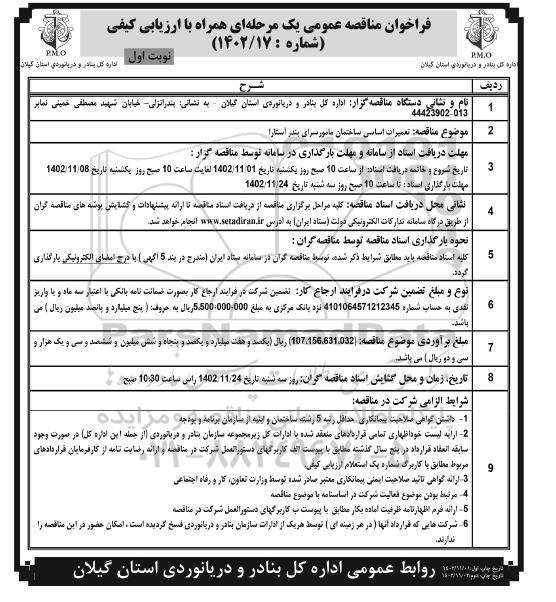 فراخوان مناقصه عمومی یک مرحله‌ای همراه با ارزیابی کیفی
(شماره : ۱۴۰۲/۱۷)
نوبت اول
P.M.O
اداره کل بنادر و دریانوردی استان گیلان
P.M.O
اداره کل بنادر و دریانوردی استان گیلان
ردیف
شرح
1
نام و نشانی دستگاه مناقصه‌گزار: اداره کل بنادر و دریانوردی استان گیلان - به نشانی: بندرانزلی- خیابان شهید مصطفی خمینی نمابر
44423902-013
2
موضوع مناقصه: تعمیرات اساسی ساختمان مامورسرای بندر آستارا
3
مهلت دریافت اسناد از سامانه و مهلت بارگذاری در سامانه توسط مناقصه گزار :
تاریخ شروع و خاتمه دریافت اسناد: از ساعت 10 صبح روز یکشنبه تاریخ 1402/11/01 لغایت ساعت 10 صبح روز یکشنبه تاریخ 1402/11/08
مهلت بارگذاری اسناد : تا ساعت 10 صبح روز سه شنبه تاریخ 1402/11/24
4
نشانی محل دریافت اسناد مناقصه: کلیه مراحل برگزاری مناقصه از دریافت اسناد مناقصه تا ارائه پیشنهادات و گشایش پوشه های مناقصه گران
از طریق درگاه سامانه تدارکات الکترونیکی دولت (ستاد ایران) به آدرس www.setadiran.ir انجام خواهد شد.
5
نحوه بارگذاری اسناد مناقصه توسط مناقصه‌گران :
کلیه اسناد مناقصه باید مطابق شرایط ذکر شده، توسط مناقصه گران در سامانه ستاد ایران (مندرج در بند 5 آگهی ) با درج امضای الکترونیکی بارگذاری
گردد.
6
نوع و مبلغ تضمین شرکت درفرایند ارجاع کار: تضمین شرکت در فرایند ارجاع کار بصورت ضمانت نامه بانکی با اعتبار سه ماه و یا واریز
نقدی به حساب شماره 4101064571212345 نزد بانک مرکزی به مبلغ 5.500.000.000ریال به حروف: ( پنج میلیارد و پانصد میلیون ریال ) می
باشد.
7
مبلغ برآوردی موضوع مناقصه: (107.156.631.032) ریال (یکصد و هفت میلیارد و یکصد و پنجاه و شش میلیون و ششصد و سی و یک هزار و
سی و دو ریال ) می باشد.
8
تاریخ، زمان و محل گشایش اسناد مناقصه گران: روز سه شنبه تاریخ 1402/11/24 راس ساعت 10:30 صبح
9
شرایط الزامی شرکت در مناقصه:
1- داشتن گواهی صلاحیت پیمانکاری حداقل رتبه 5 رشته ساختمان و ابنیه از سازمان برنامه و بودجه
2- ارایه لیست خوداظهاری تمامی قراردادهای منعقد شده با ادارات کل زیرمجموعه سازمان بنادر و دریانوردی (از جمله این اداره کل) در صورت وجود
سابقه انعقاد قرارداد در پنج سال گذشته مطابق با پیوست الف کاربرگهای دستورالعمل شرکت در مناقصه و ارائه رضایت نامه از کارفرمایان قراردادهای
مربوط مطابق با کاربرگ شماره یک استعلام ارزیابی کیفی.
3-ارائه گواهی تائید صلاحیت ایمنی پیمانکاری معتبر صادر شده توسط وزارت تعاون، کار و رفاه اجتماعی
4- مرتبط بودن موضوع فعالیت شرکت در اساسنامه با موضوع مناقصه
5- ارائه فرم اظهارنامه ظرفیت آماده بکار مطابق با پیوست ب کاربرگهای دستورالعمل شرکت در مناقصه
6- شرکت هایی که قرارداد آنها ( در هر زمینه ای ) توسط هریک از ادارات سازمان بنادر و دریانوردی فسخ گردیده است ، امکان حضور در این مناقصه را
ندارند.
روابط عمومی اداره کل بنادر و دریانوردی استان گیلان
تاریخ چاپ اول: ۱۴۰۲/۱۱/۰۱
تاریخ چاپ دوم: ۱۴۰۲/۱۱/۰۲